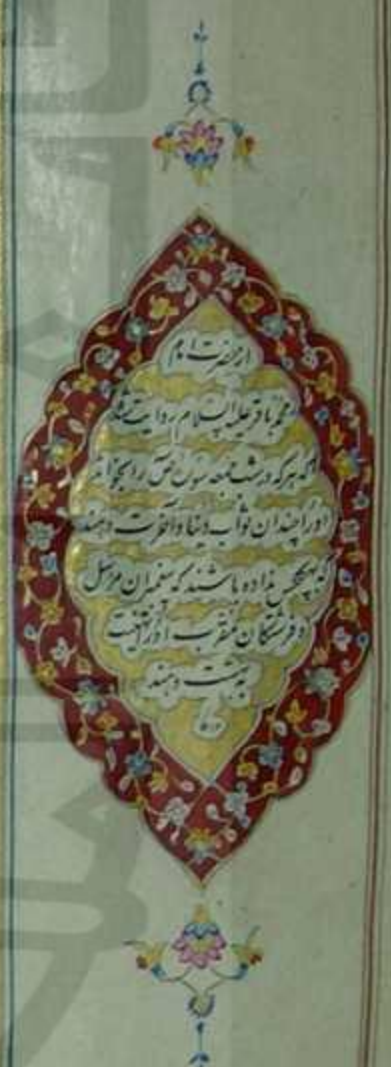 از حضرت امام
محمد باقر علیه السلام روایت شده
که هر که در شب جمعه سوره ص را بخواند
او را چندان ثواب دنیا و آخرت دهند
که بهیچکس نداده باشند که پیغمبران مرسل
و فرشتگان مقرب او را
بهشت دهند